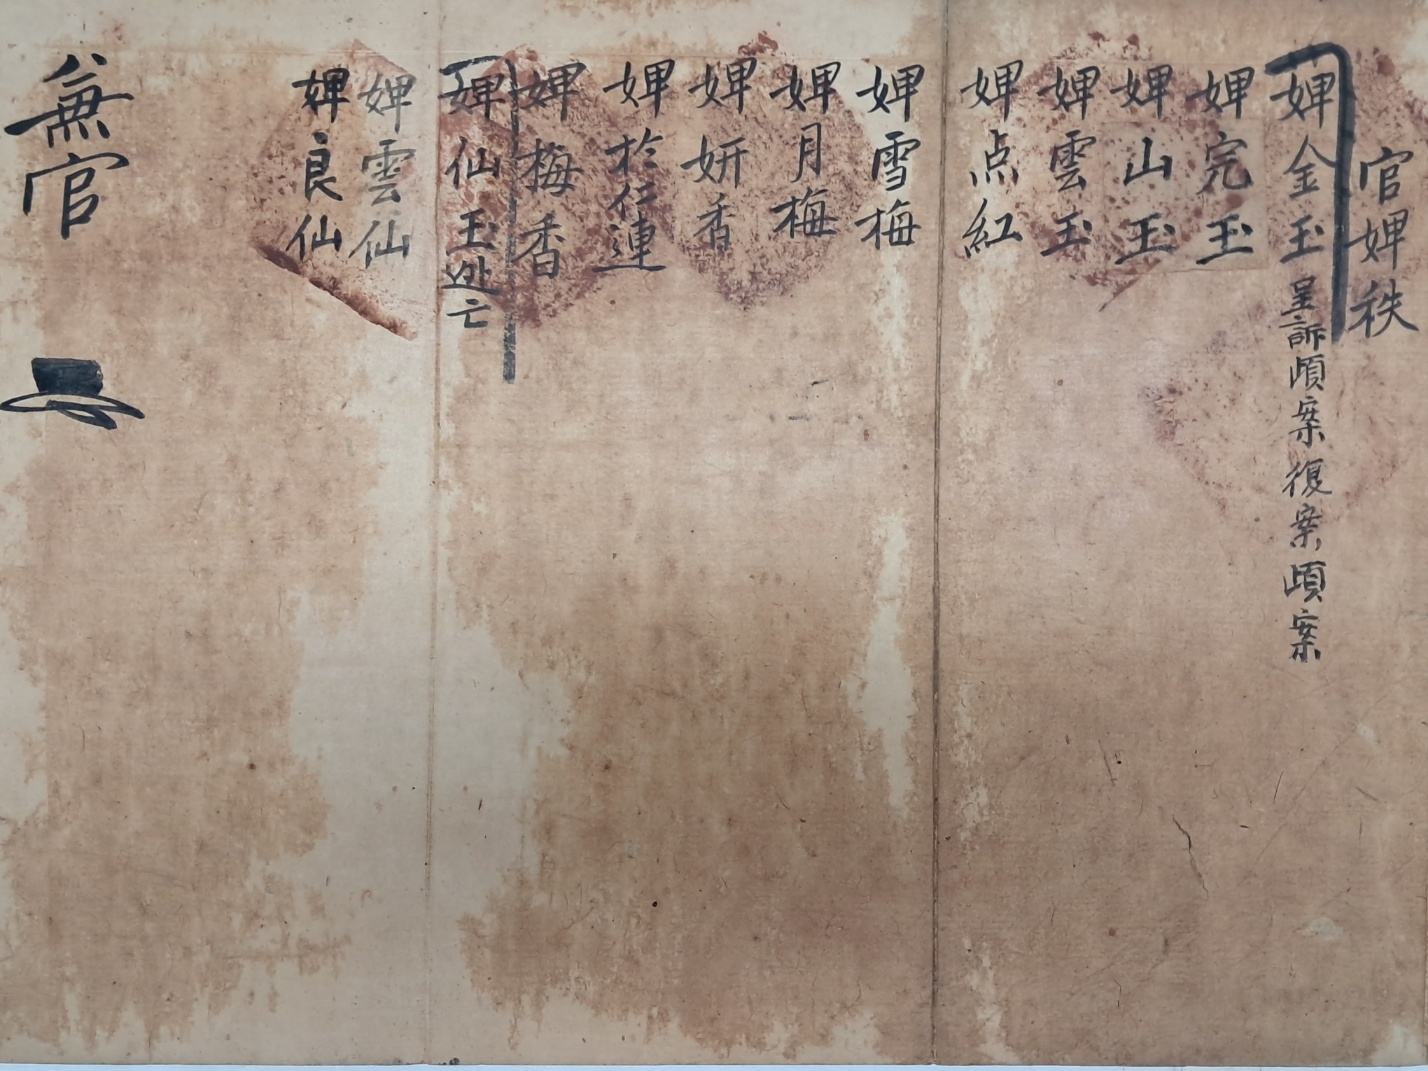 官婢秩
婢金玉呈訴頉案復案頉案
婢完玉
婢山玉
婢雲玉
婢点紅
婢雪梅
婢月梅
婢妍香
婢於仁連
婢梅香
婢仙玉逃亡
婢雲仙
婢良仙
兼官